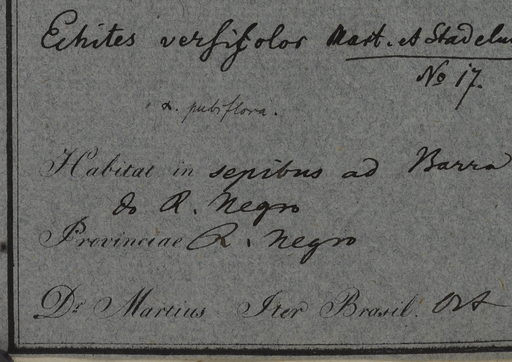 Echites versicolor Mart. et Stadelm
No 17.
α. pubiflora.
Habitat in sepibus ad Barra
do R. Negro
Provinciae R. Negro
Dr. Martius Iter Brasil. Oct